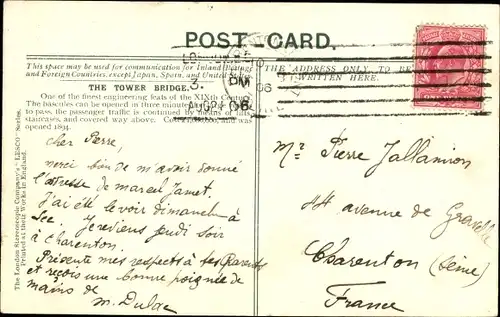 POST-CARD.
This space may be used for communication for Inland Postage
and Foreign Countries, except Japan, Spain, and United States.
THE ADDRESS ONLY TO BE
WRITTEN HERE.
3. PM
AUG 24 06
06
THE TOWER BRIDGE.
One of the finest engineering feats of the XIXth Century.
The bascules can be opened in three minutes
to pass, the passenger traffic is continued by means of lifts,
staircases, and covered way above. and was
opened 1894.
The London Stereoscopic Company's "LESCO" Series.
Printed at their Works in England.
cher Pierre,
merci bien de m'avoir donné
l'adresse de marcel Janet.
J'ai été le voir dimanche à
Lee. Je reviens jeudi soir
à Charenton.
Présente mes respects à tes Parents
et reçois une bonne poignée de
mains de
m. Dulac
Mr Pierre Jallanion
44 avenue de Gravelle
Charenton (Seine)
France